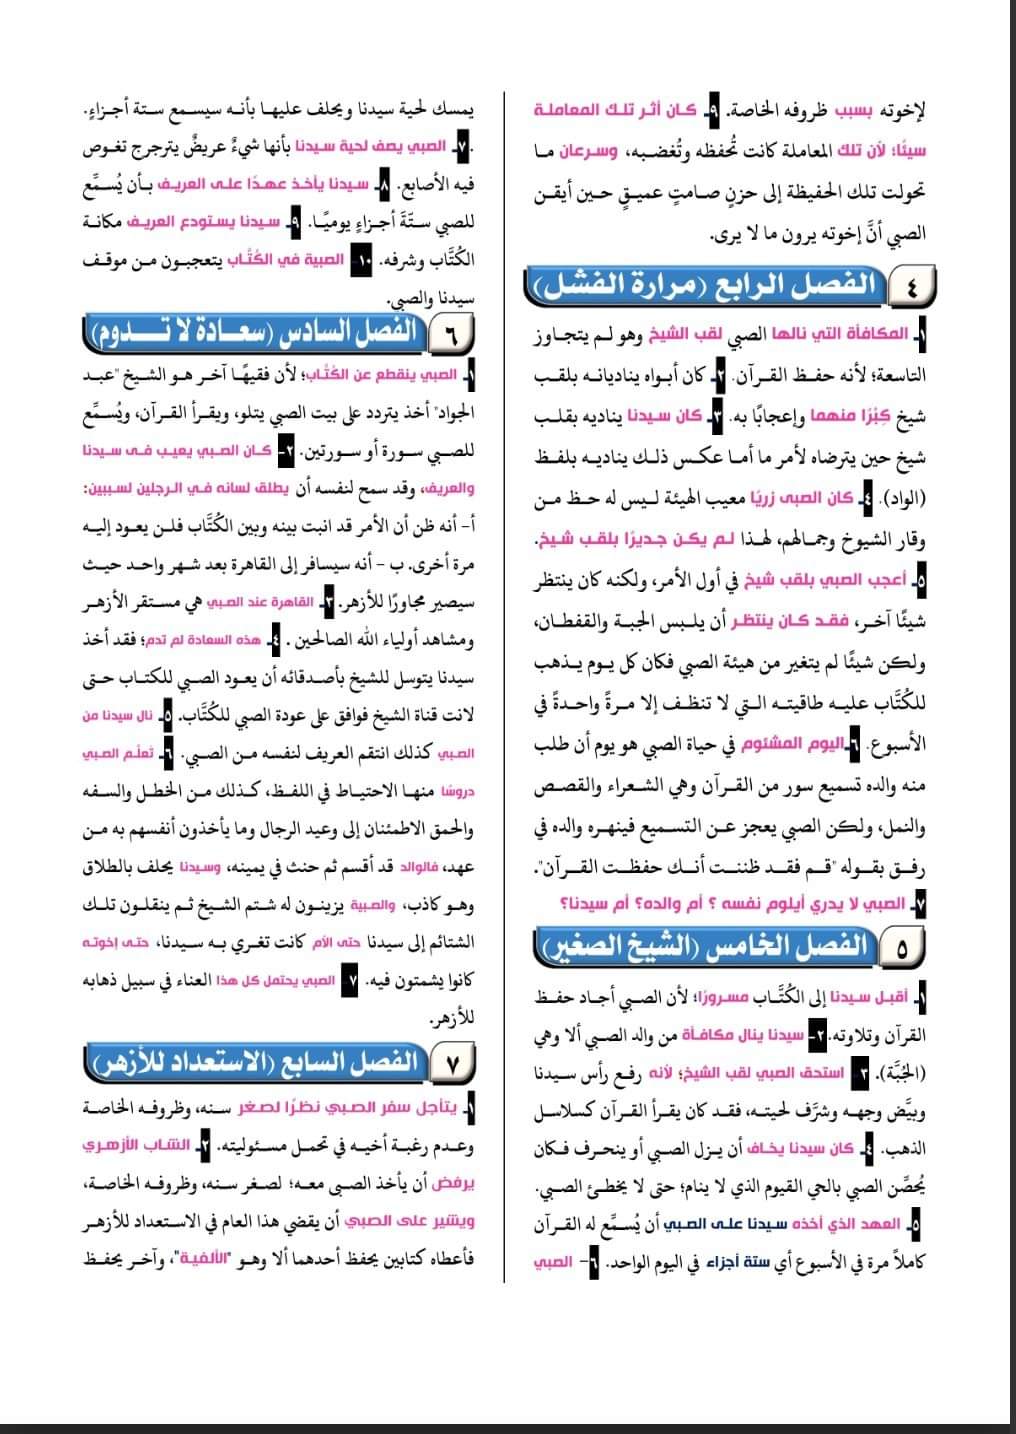 لإخوته بسبب ظروفه الخاصة. ٩ـ كان أثر تلك المعاملة
سيئًا؛ لأن تلك المعاملة كانت تُحفظه وتُغضبه، وسرعان ما
تحولت تلك الحفيظة إلى حزنٍ صامتٍ عميقٍ حين أيقن
الصبي أنَّ إخوته يرون ما لا يرى.
٤ الفصل الرابع (مرارة الفشل)
١ـ المكافأة التي نالها الصبي لقب الشيخ وهو لم يتجاوز
التاسعة؛ لأنه حفظ القرآن. ٢ـ كان أبواه يناديانه بلقب
شيخ كِبْرًا منهما وإعجابًا به. ٣ـ كان سيدنا يناديه بقلب
شيخ حين يترضاه لأمر ما أما عكس ذلك يناديه بلفظ
(الواد). ٤ـ كان الصبى زريًا معيب الهيئة ليس له حظ من
وقار الشيوخ وجمالهم، لهذا لم يكن جديرًا بلقب شيخ.
٥ـ أعجب الصبي بلقب شيخ في أول الأمر، ولكنه كان ينتظر
شيئًا آخر، فقد كان ينتظر أن يلبس الجبة والقفطان،
ولكن شيئًا لم يتغير من هيئة الصبي فكان كل يوم يذهب
للكُتَّاب عليه طاقيته التي لا تنظف إلا مرةً واحدةً في
الأسبوع. ٦ـ اليوم المشئوم في حياة الصبي هو يوم أن طلب
منه والده تسميع سور من القرآن وهي الشعراء والقصص
والنمل، ولكن الصبي يعجز عن التسميع فينهره والده في
رفق بقوله "قم فقد ظننت أنك حفظت القرآن".
٧ـ الصبي لا يدري أيلوم نفسه ؟ أم والده؟ أم سيدنا؟
٥ الفصل الخامس (الشيخ الصغير)
١ـ أقبل سيدنا إلى الكُتَّاب مسرورًا؛ لأن الصبي أجاد حفظ
القرآن وتلاوته. ٢- سيدنا ينال مكافأة من والد الصبي ألا وهي
(الجُبَّة). ٣- استحق الصبي لقب الشيخ؛ لأنه رفع رأس سيدنا
وبيَّض وجهه وشرَّف لحيته، فقد كان يقرأ القرآن كسلاسل
الذهب. ٤ـ كان سيدنا يخاف أن يزل الصبي أو ينحرف فكان
يُحصِّن الصبي بالحي القيوم الذي لا ينام؛ حتى لا يخطئ الصبي.
٥ـ العهد الذي أخذه سيدنا على الصبي أن يُسمِّع له القرآن
كاملاً مرة في الأسبوع أي ستة أجزاء في اليوم الواحد. ٦- الصبي
يمسك لحية سيدنا ويحلف عليها بأنه سيسمع ستة أجزاءٍ.
.٧ـ الصبي يصف لحية سيدنا بأنها شيءٌ عريضٌ يترجرج تغوص
فيه الأصابع. ٨ـ سيدنا يأخذ عهدًا على العريف بأن يُسمِّع
للصبي ستّةَ أجزاءٍ يوميًا. ٩ـ سيدنا يستودع العريف مكانة
الكُتَّاب وشرفه. ١٠- الصبية في الكُتَّاب يتعجبون من موقف
سيدنا والصبي.
٦ الفصل السادس (سعادة لا تدوم)
١ـ الصبي ينقطع عن الكُتَّاب؛ لأن فقيهًا آخر هو الشيخ "عبد
الجواد" أخذ يتردد على بيت الصبي يتلو، ويقرأ القرآن، ويُسمِّع
للصبي سورة أو سورتين. ٢- كان الصبي يعيب فى سيدنا
والعريف، وقد سمح لنفسه أن يطلق لسانه في الرجلين لسببين:
أ- أنه ظن أن الأمر قد انبت بينه وبين الكُتَّاب فلن يعود إليه
مرة أخرى. ب - أنه سيسافر إلى القاهرة بعد شهر واحد حيث
سيصير مجاورًا للأزهر. ٣ـ القاهرة عند الصبي هي مستقر الأزهر
ومشاهد أولياء الله الصالحين . ٤ـ هذه السعادة لم تدم؛ فقد أخذ
سيدنا يتوسل للشيخ بأصدقائه أن يعود الصبي للكتاب حتى
لانت قناة الشيخ فوافق على عودة الصبي للكُتَّاب. ٥ـ نال سيدنا من
الصبي كذلك انتقم العريف لنفسه من الصبي. ٦ـ تَعلَّم الصبي
دروسًا منها الاحتياط في اللفظ، كذلك من الخطل والسفه
والحمق الاطمئنان إلى وعيد الرجال وما يأخذون أنفسهم به من
عهد، فالوالد قد أقسم ثم حنث في يمينه، وسيدنا يحلف بالطلاق
وهو كاذب، والصبية يزينون له شتم الشيخ ثم ينقلون تلك
الشتائم إلى سيدنا حتى الأم كانت تغري به سيدنا، حتى إخوته
كانوا يشمتون فيه. ٧- الصبي يحتمل كل هذا العناء في سبيل ذهابه
للأزهر.
٧ الفصل السابع (الاستعداد للأزهر)
١ـ يتأجل سفر الصبي نظرًا لصغر سنه، وظروفه الخاصة
وعدم رغبة أخيه في تحمل مسئوليته. ٢ـ الشاب الأزهري
يرفض أن يأخذ الصبى معه؛ لصغر سنه، وظروفه الخاصة،
ويشير على الصبي أن يقضي هذا العام في الاستعداد للأزهر
فأعطاه كتابين يحفظ أحدهما ألا وهو "الألفية"، وآخر يحفظ